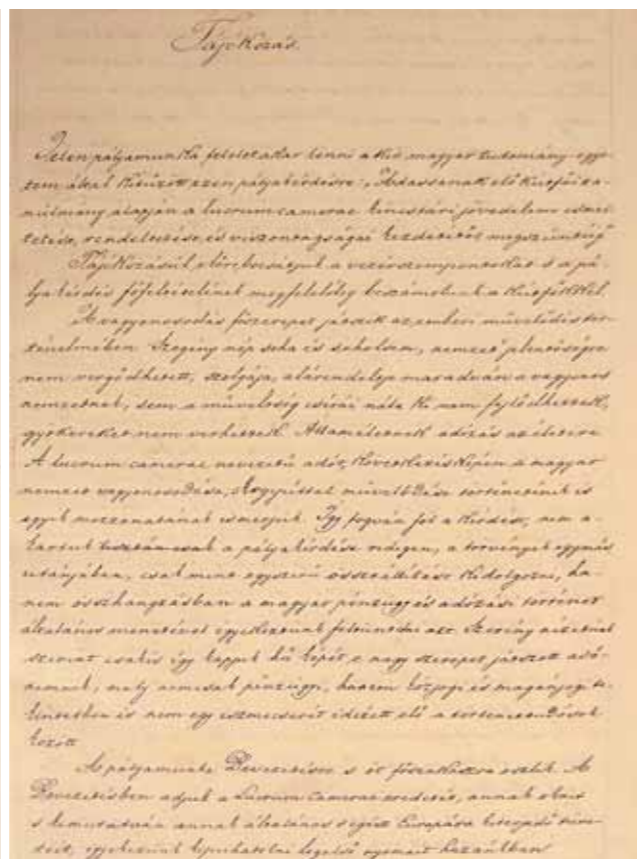 Tájékozás.
Jelen pályamunka felelet akar lenni a kir. magyar tudomány-egye-
tem által kitűzött ezen pályakérdésre: „Adassanak elő kútfői ta-
nulmány alapján a lucrum camerae kincstári jövedelem ismer-
tetése, rendeltetése, és viszontagságai kezdetétől megszüntéig"
Tájékozásúl előrebocsátjuk a vezérszempontokat s a pá-
lyakérdés főfeltételének megfelelőleg beszámolunk a kútfőkkel.
A vagyonosodás főszerepet játszik az emberi művelődés tör-
ténelmében. Szegény nép soha és sehol sem, nemzeti jelentőségre
nem vergődhetett, szolgája, alárendeltje maradván a vagyonos
nemzetnek, sem a műveltség csirái nála ki nem fejlődhettek,
gyökereket nem verhettek. Államéletnek adózás az éltetője
A lucrum camerae nevezetű adót, következésképen a magyar
nemzet vagyonosodása, s egyúttal művelődése történetének is
egyik mozzanatának ismerjük. Így fogván fel a kérdést, nem a-
kartuk tisztán csak a pályakérdést ridegen, a törvények egymás
utánjában, csak mint egyszerű összeállítást kidolgozni, ha-
nem összhangzásban a magyar pénzügy és adózási történet
általános menetével igyekeztünk feltüntetni azt. Szerény nézetünk
szerint csakis így kapjuk hű képét, e nagy szerepet játszott adó-
nemnek, mely nemcsak pénzügyi, hanem közjogi és magánjogi te-
kintetben is nem egy eszmecserét idézett elő a történettudósok
között.
A pályamunka Bevezetésre s öt főszakaszra oszlik. A
Bevezetésben adjuk a Lucrum camerae eredetét, annak okait
s kimutatván annak általános s egész Európára kiterjedő
igyekezünk kipuhatolni legelső nyomait hazánkban